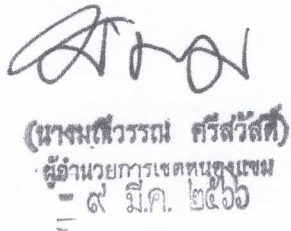 (นางมณีวรรณ ศรีสวัสดิ์)
ผู้อำนวยการเขตหนองแขม
- ๙ มี.ค. ๒๕๖๖